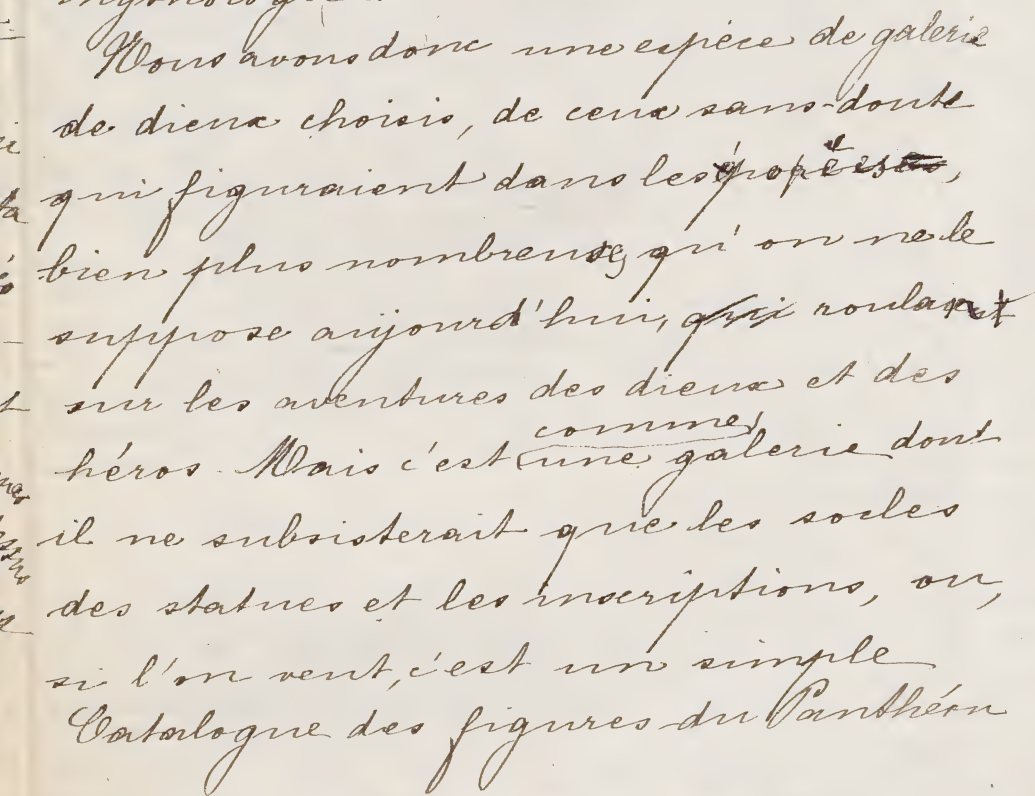 Nous avons donc une espéce de galerie
de dieux choisis, de ceux sans-doute
qui figuraient dans les épopées,
bien plus nombreuses qu'on ne le
suppose aujourd'hui, qui roulant
sur les aventures des dieux et des
héros. Mais c'est comme une galerie dont
il ne subsisterait que les socles
des statues et les inscriptions, ou,
si l'on veut, c'est un simple
Catalogue des figures du Panthéon